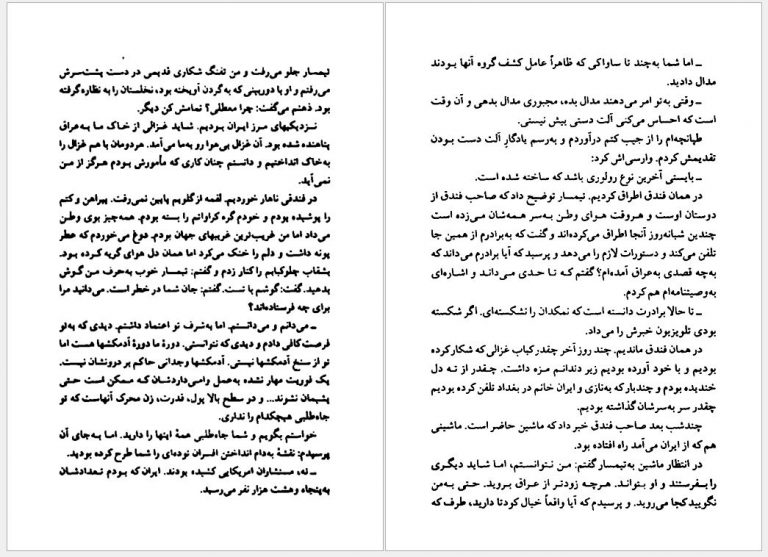 تیمسار جلو می‌رفت و من تفنگ شکاری قدیمی در دست پشت‌سرش
می‌رفتم و او با دوربینی که به‌گردن آویخته بود، نخلستان را به نظاره گرفته
بود. ذهنم می‌گفت: چرا معطلی؟ تمامش کن دیگر.
نـزدیکیهای مـرز ایـران بـودیـم. شـایـد غـزالی از خـاک مـا بـه‌عـراق
پناهنده شده بود. آن غزال بی‌هوا رو به‌ما می‌آمد. هردومان با هم غزال را
به‌خاک انداختیم و دانستم چنان کاری که مأمورش بـودم هـرگز از مـن
نمی‌آید.
در فندقی ناهار خوردیـم. لقمه ازگلویم پایین نمی‌رفت. پیراهن و کتم
را پوشیده بودم و خودم گره کراواتم را بسته بودم. همه‌چیز بوی وطـن
می‌داد اما من غریب‌ترین غریبهای جهان بودم. دوغ می‌خوردم که عطر
پونه داشت و دلم را خنک می‌کرد اما همان دل هوای گریه کـرده بـود.
بشقاب چلوکبابم را کنار زدم و گفتم: تیمسار خوب به‌حرف مـن گـوش
بدهید. گفت: گوشم با تست. گفتم: جان شما در خطر است. می‌دانید مرا
برای چه فرستاده‌اند؟
ـ می‌دانم و می‌دانستم. اما به‌شرف تو اعتماد داشتم. دیدی که به‌تو
فرصت کافی دادم و دیدی که نتوانستی. دورۀ ما دورۀ آدمکشها هست اما
تو از سنخ آدمکشها نیستی. آدمکشها وجدانی حاکم بر درونشان نیست.
یک فوریت مهار نشده به‌عمل وامـی‌داردشـان کـه مـمکن است حـتـی
پشیمان نشوند... و در سطح بالا پول، قدرت، زن محرک آنهاست که تو
جاه‌طلبی هیچکدام را نداری.
خواستم بگویم و شما جاه‌طلبی همۀ اینها را دارید. اما بـه‌جای آن
پرسیدم: نقشۀ به‌دام انداختن افسران توده‌ای را شما طرح کرده بودید.
ـ نه، مستشاران امریکایی کشیده بودند. ایران کـه بـودم تـعدادشان
به‌پنجاه وهشت هزار نفر می‌رسید.
ـ اما شما به‌چند تا ساواکی که ظاهراً عامل کشف گروه آنها بـودند
مدال دادید.
ـ وقتی به‌تو امر می‌دهند مدال بده، مجبوری مدال بدهی و آن وقت
است که احساس می‌کنی آلت دستی بیش نیستی.
طپانچه‌ام را از جیب کتم درآوردم و به‌رسم یادگارِ آلت دست بـودن
تقدیمش کردم. وارسی‌اش کرد:
ـ بایستی آخرین نوع رولوری باشد که ساخته شده است.
در همان فندق اطراق کردیم. تیمسار توضیح داد که صاحب فندق از
دوستان اوست و هـروقت هـوای وطـن بـه‌سـر همه‌شـان مـی‌زده است
چندین شبانه‌روز آنجا اطراق می‌کرده‌اند و گفت که به‌برادرم از همین جا
تلفن می‌کند و دستورات لازم را می‌دهد و پرسید که آیا برادرم می‌داند که
به‌چه قصدی به‌عراق آمده‌ام؟ گفتم کـه تـا حـدی مـی‌دانـد و اشـاره‌ای
به‌وصیتنامه‌ام هم کردم.
ـ تا حالا برادرت دانسته است که نمکدان را نشکسته‌ای. اگر شکسته
بودی تلویزیون خبرش را می‌داد.
در همان فندق ماندیم. چند روز آخر چقدر کباب غزالی که شکار کرده
بودیم و با خود آورده بودیم زیر دندانـم مـزه داشت. چـقدر از تـه دل
خندیده بودم و چندبار که به‌نازی و ایران خانم در بغداد تلفن کرده بودیم
چقدر سر به‌سرشان گذاشته بودیم.
چندشب بعد صاحب فندق خبر داد که ماشین حاضر است. ماشینی
هم که از ایران می‌آمد راه افتاده بود.
در انتظار ماشین به‌تیمسار گفتم: مـن نـتوانسـتم، اما شـاید دیگـری
را بـفرستند و او بـتوانـد. هـرچـه زودتـر از عـراق بـرویـد. حـتـی بـه‌من
نگویید کجا می‌روید. و پرسیدم که آیا واقعاً خیال کودتا دارید، طرف که